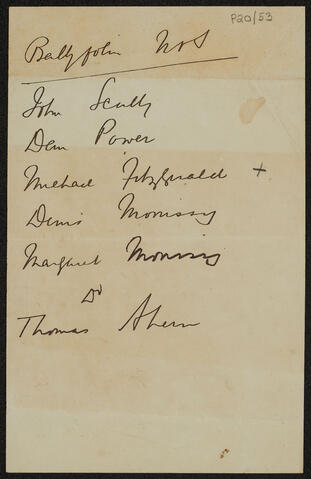 P20/53
Ballyfolin No 5
John Scully
Dem Power
Michael Fitzgerald +
Denis Morrissy
Margaret Morrissy
Do
Thomas Ahern